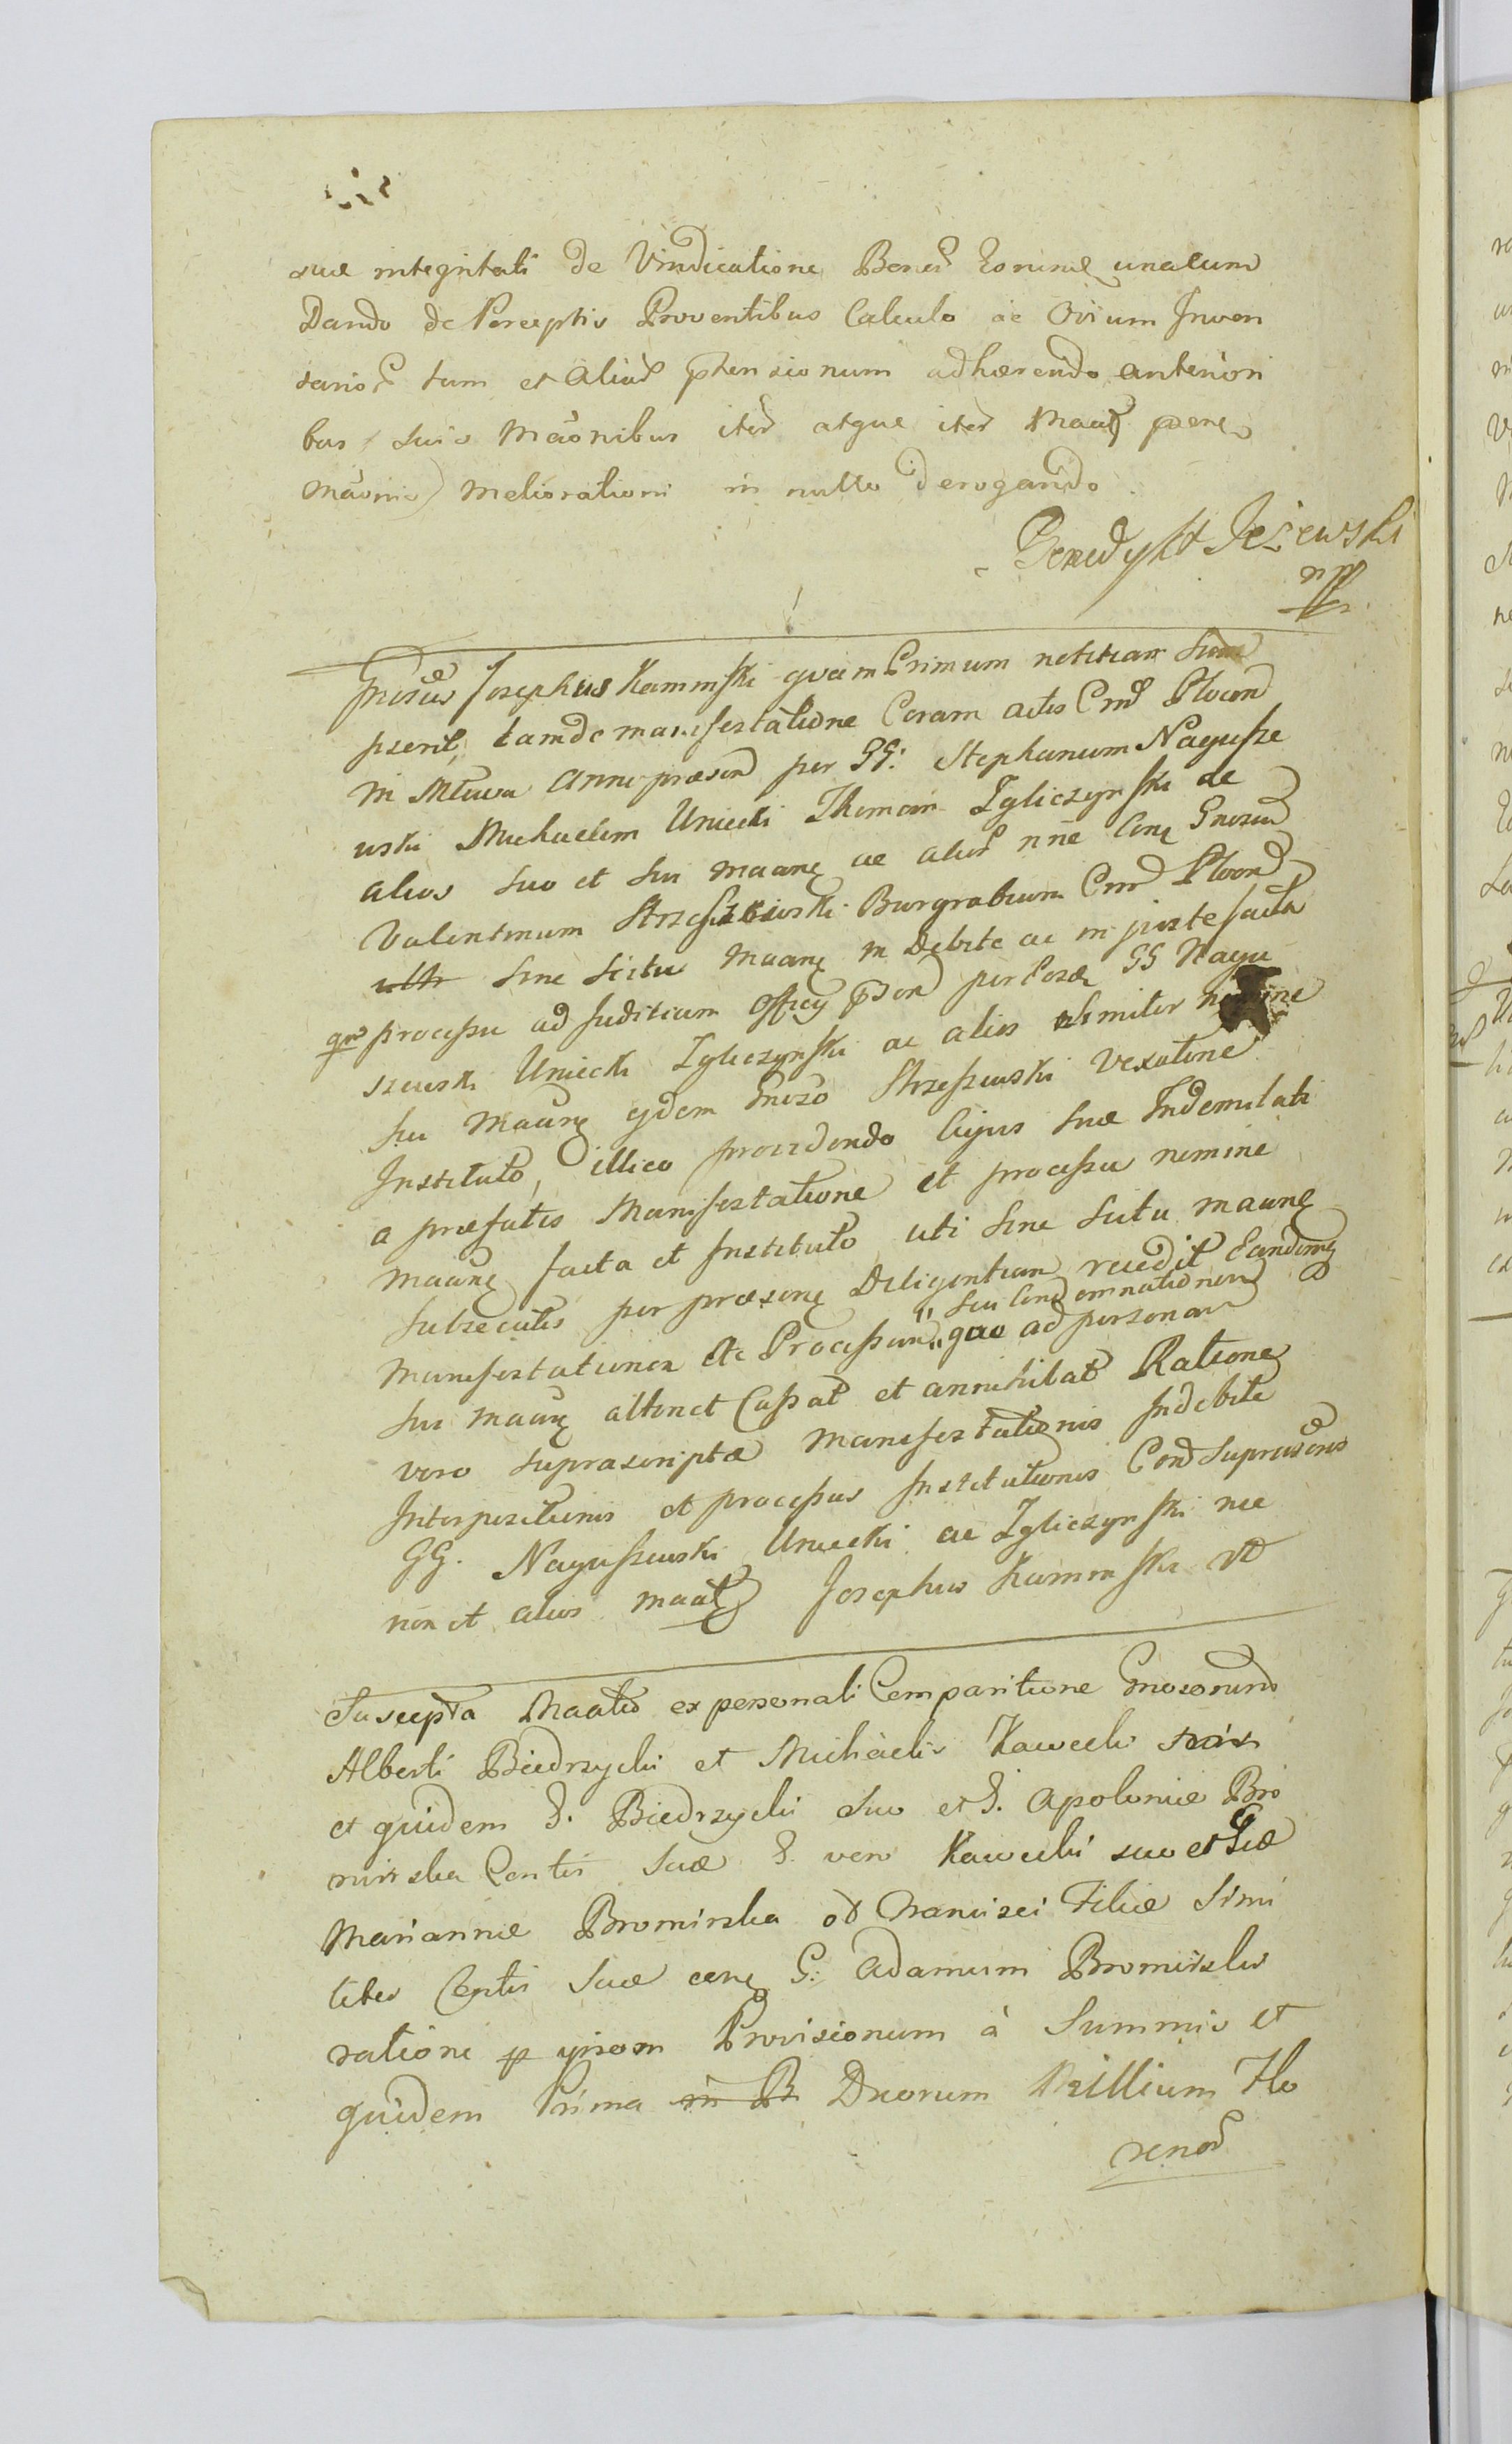 suæ integritati de Vindicatione Bonor Eorumq unacum
Dando de Perceptis Proventibus Calculo ac Ovium Inven
tarior tum et Aliar ptensionum adhærendo anteriori
bus suis Mãonibus iter atque iter Maatq psens
Mãonis) Meliorationi in nullo derogando.
Benedykt Jeżewski
mp
Gnosus Josephus Kaminski quam Primum notitiam Sum
pserit, tam de manifestatione Coram actis Cmd Plocen
in Mława Anni præsen per GG: Stephanum Nagusze
wski Michaelem Uniecki Thomam Zgliczynski ac
alios suo et sui maanq ac alior nne Conq Gnosum
Valentinum Strzeszewski Burgrabium Cmd Plocen
sine scitu maanq indebite ac injuste facta
qm processu ad Juditium Officy psen per eosd GG Nagu
szewski Uniecki Zgliczynski ac alios similiter nomine
sui maanq ejdem Gnoso Strzeszewski Vexatione
Instituto, illico providendo Cujus suæ Indemnitati
a præfatis Manifestatione et processu nomine
maanq facta et Instituto uti sine scitu maanq
subsecutis per præsenq Diligentiam recedit Eandemq
seu Condemnationem
Manifestationem ac Processum quo ad personam
sui maanq attinet Cassat et annihilat Ratione
vero suprascriptæ manifestationis Indebite
Interpositionis et processus Institutionis Con Supravisos
GG. Naguszewski Uniecki ac Zgliczynski nec
non et alios maatq Josephus Kaminski
Suscepta Maatio ex personali Comparitione Gnosorum
Alberti Biedrzycki et Michaelis Kawecki
et quidem G. Biedrzycki suo et G. Apoloniæ Bro
mirska Contis suæ G. vero Kawecki suo et Gæ
Mariannæ Bromirska Francisci Filiæ Simi
liter Contis suæ conq G: Adamum Bromirski
ratione Provisionum à Summis et
quidem Prima Duorum Millium Flo
renor